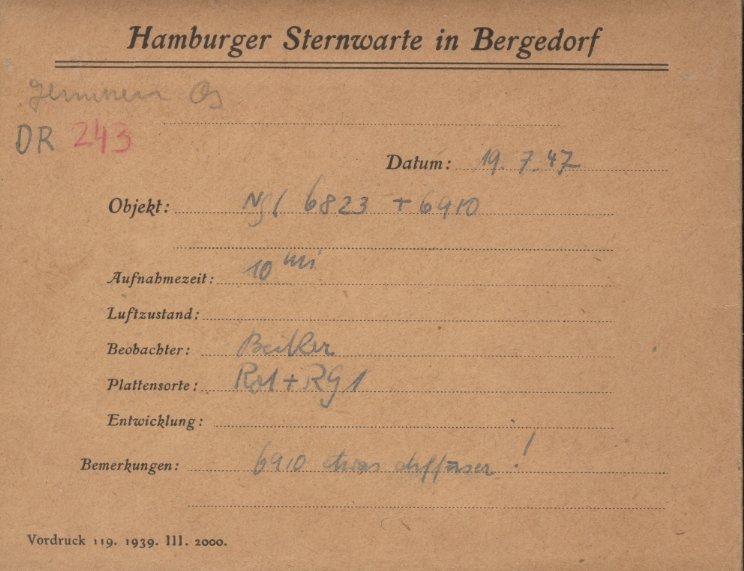 Hamburger Sternwarte in Bergedorf
DR 243
Datum: 19. 7. 47
Objekt: Ngc 6823 + 6910
Aufnahmezeit: 10 min
Luftzustand:
Beobachter:
Plattensorte: Rot + RG 1
Entwicklung:
Bemerkungen: 6910 etwas diffuser!
Vordruck 119. 1939. III. 2000.